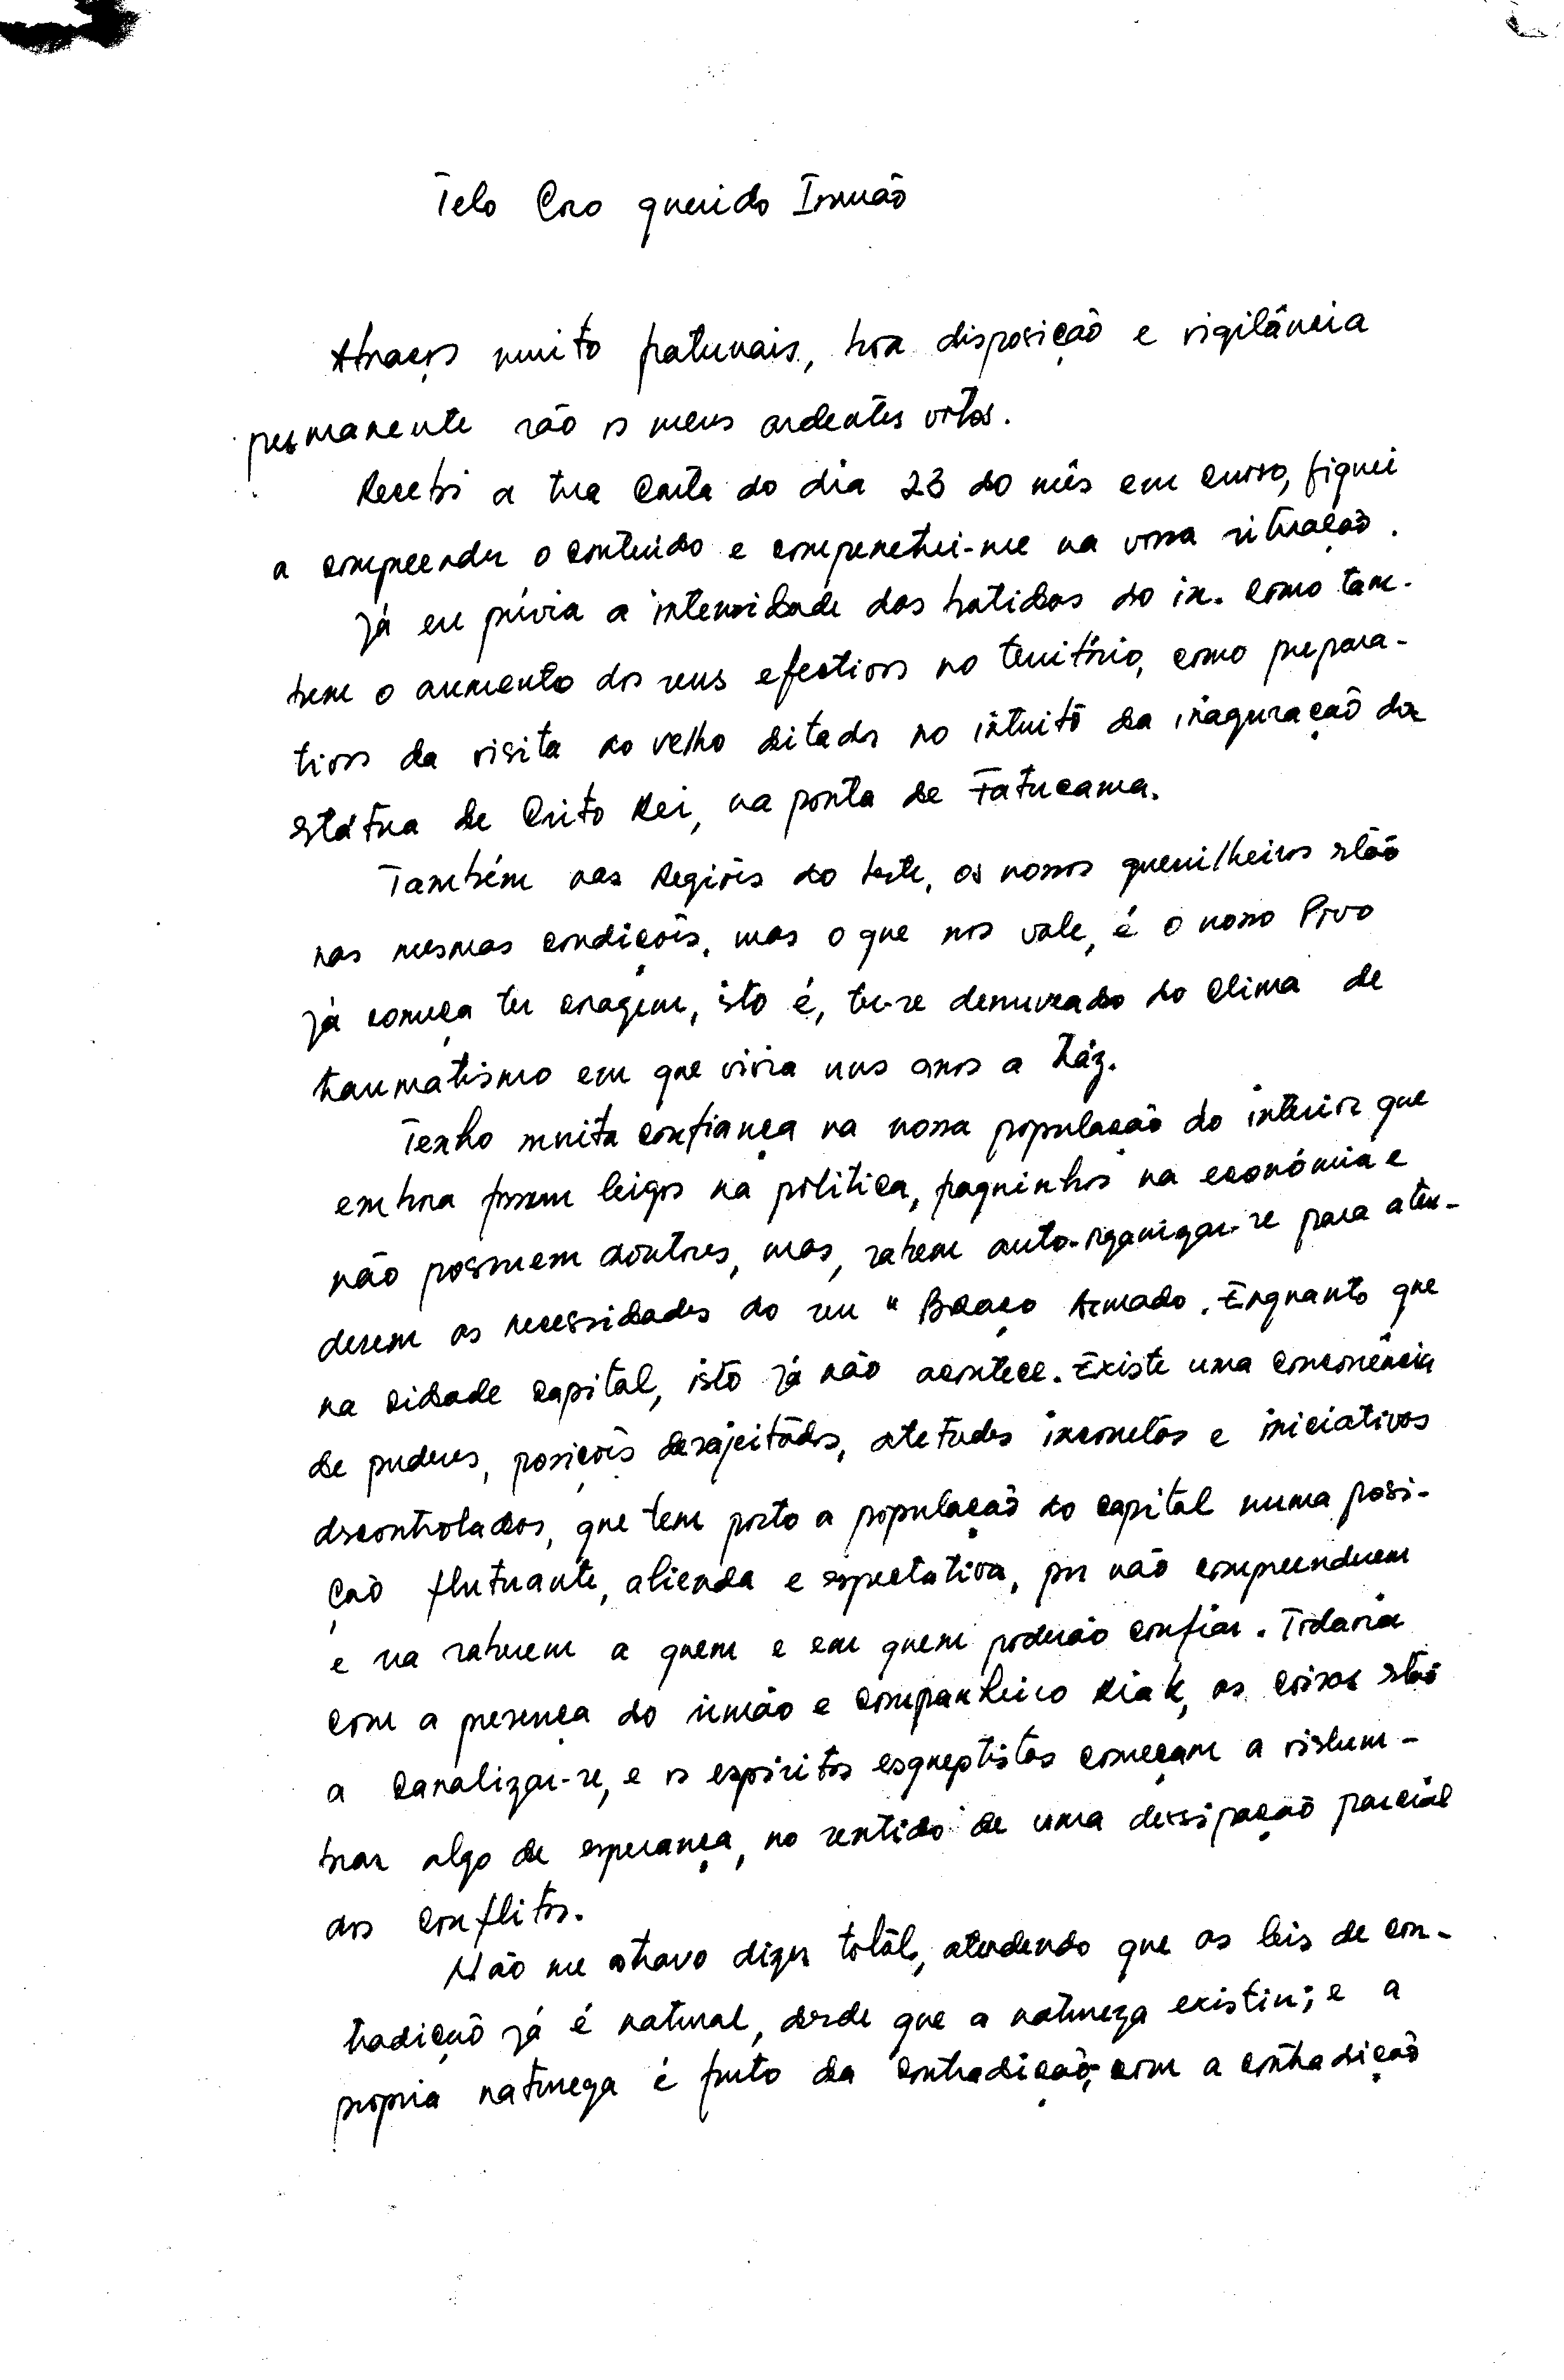 Telo Caro querido Irmão
Abraços muito fraturnais, boa disposição e vigilância
permanente são os meus ardentes votos.
Recebi a tua Carta do dia 23 do mês em curso, fiquei
a compreender o conteúdo e compenetrei-me na vossa situação.
Já eu prévia a intensidade das batidas do in. como tam-
bem o aumento dos seus efectivos no território, como prepara-
tivos da visita do velho ditador no intuito da inaguração da
Státua de Cristo Rei, na ponta de Fatucama.
Também nas Regiões do leste, os nossos guerrilheiros stão
nas mesmas condições, mas o que nos vale, é o nosso Povo
já começa ter coragem, isto é, ter-se desnuveado do clima de
traumatismo em que vivia uns anos a tráz.
Tenho muita confiança na nossa população do interior que
embora fossem leigos na politica, fraquinhos na económia e
não possuem doutores, mas, sabem auto-organizar-se para aten-
derem as necessidades do seu " Braço Armado. Enquanto que
na cidade capital, isto já não acontece. Existe uma concorrência
de puderes, posições desajeitados, atetudes incorretas e iniciativas
dscontroladas, que tem posto a população do capital numa posi-
ção flutuante, alienda e espectativa, por não compreenderem
e na saberem a quem e em quem poderão confiar. Todavia
com a presença do irmão e companheiro Riak, as coisas stão
a canalizar-se, e os espíritos esqueptistas começam a vislum-
brar algo de esperança, no sentido de uma dessipação parcial
dos conflitos.
Não me atravo dizer totál, atendendo que as leis de con-
tradição já é natural, desde que a natureza existiu; e a
propria natureza é fruto da contradição, com a contradição